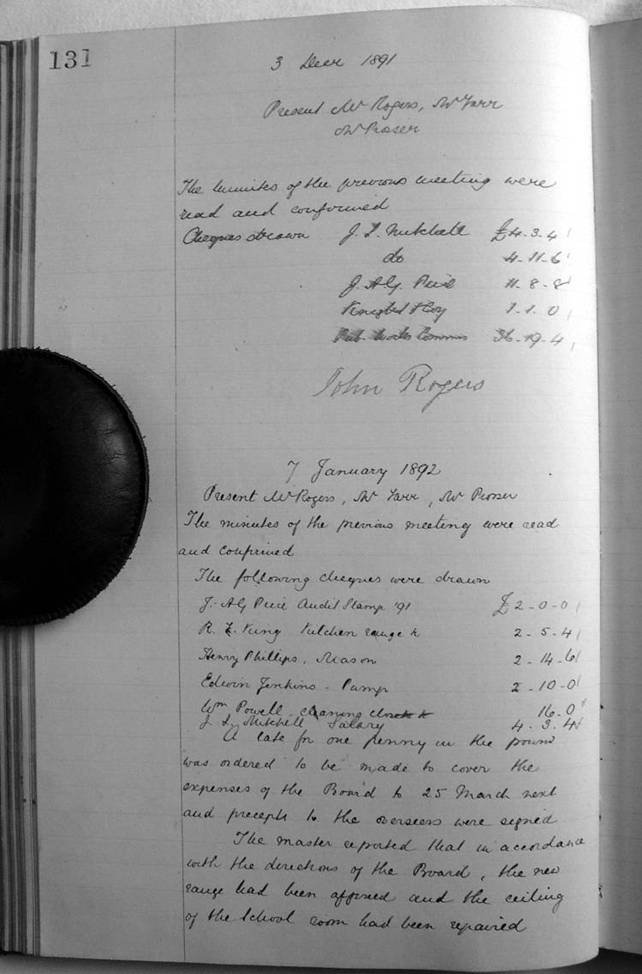 131
3 Decr 1891
Present Mr Rogers, Mr Farr
Mr Prosser
The minutes of the previous meeting were
read and confirmed
Cheques drawn J. L. Mitchell £4-3-4
do 4-11-6
J. A. G. 11-8-8
Knight & Coy 1-1-0
Pub. Works Commrs 36-19-4
John Rogers
7 January 1892
Present Mr Rogers, Mr Farr, Mr Prosser
The minutes of the previous meeting were read
and confirmed
The following cheques were drawn
J. A. G. Audit Stamp '91 £2-0-0
R. E. King Kitchen range &c 2-5-4
Henry Phillips, Mason 2-14-6
Edwin Jenkins - Pump 2-10-0
Wm Powell - cleaning 16-0
J. L. Mitchell Salary 4-3-4
A rate for one penny in the pound
was ordered to be made to cover the
expenses of the Board to 25 March next
and precepts to the overseers were signed
The master reported that in accordance
with the directions of the Board, the new
range had been affixed and the ceiling
of the School room had been repaired